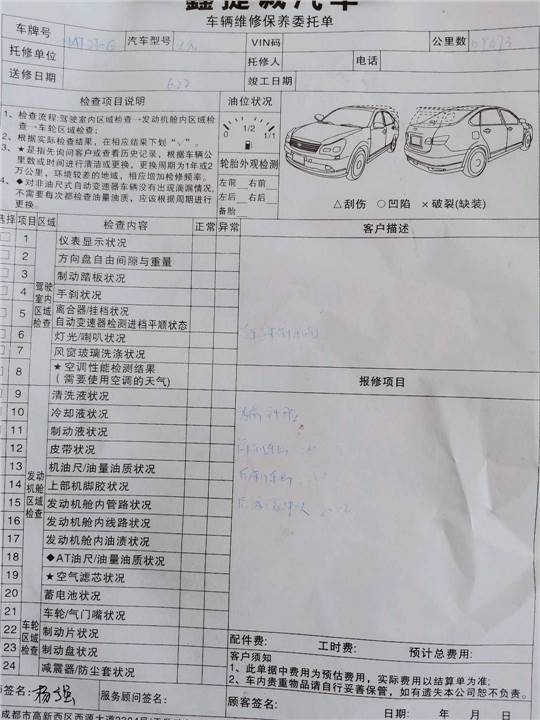 鑫捷诚汽车
车辆维修保养委托单
车牌号 汽车型号 VIN码 公里数
托修单位 托修人 电话
送修日期 竣工日期
检查项目说明
1、检查流程:驾驶室内区域检查→发动机舱内区域检
查→车轮区域检查;
2、根据实际检查结果，在相应结果下划“√”。
3、★是指先询问客户或查看历史记录，根据车辆公
里数或时间进行清洁或更换，更换周期为1年或2
万公里，环境较差的地域，相应增加检修频率。
4、◆对非油尺式自动变速器车辆没有出现滴漏情况，
不需要每次都检查油量油质，应该根据周期进行
更换。
油位状况
0 1/2 1/1
轮胎外观检测
左前 右前
左后 右后
备胎
△刮伤 ○凹陷 ×破裂(缺装)
选择 项目 区域 检查内容 正常 异常 客户描述
驾驶室内区域检查
1 仪表显示状况
2 方向盘自由间隙与重量
3 制动踏板状况
4 手刹状况
5 离合器/挂档状况
自动变速器检测进档平顺状态
6 灯光/喇叭状况
7 风窗玻璃洗涤状况
8 ★空调性能检测结果
(需要使用空调的天气)
报修项目
发动机舱区域检查
9 清洗液状况
10 冷却液状况
11 制动液状况
12 皮带状况
13 机油尺/油量油质状况
14 上部机脚胶状况
15 发动机舱内管路状况
16 发动机舱内线路状况
17 发动机舱内油渍状况
18 ◆AT油尺/油量油质状况
19 ★空气滤芯状况
20 蓄电池状况
车轮区域检查
21 车轮/气门嘴状况
22 制动片状况
23 制动盘状况
24 减震器/防尘套状况
配件费: 工时费: 预计总费用:
客户须知
1、此单据中费用为预估费用，实际费用以结算单为准;
2、车内贵重物品请自行妥善保管，如有遗失本公司恕不负责。
师签名: 杨强 服务顾问签名: 顾客签名: 日期: 年 月 日
成都市高新西区西源大道2304号